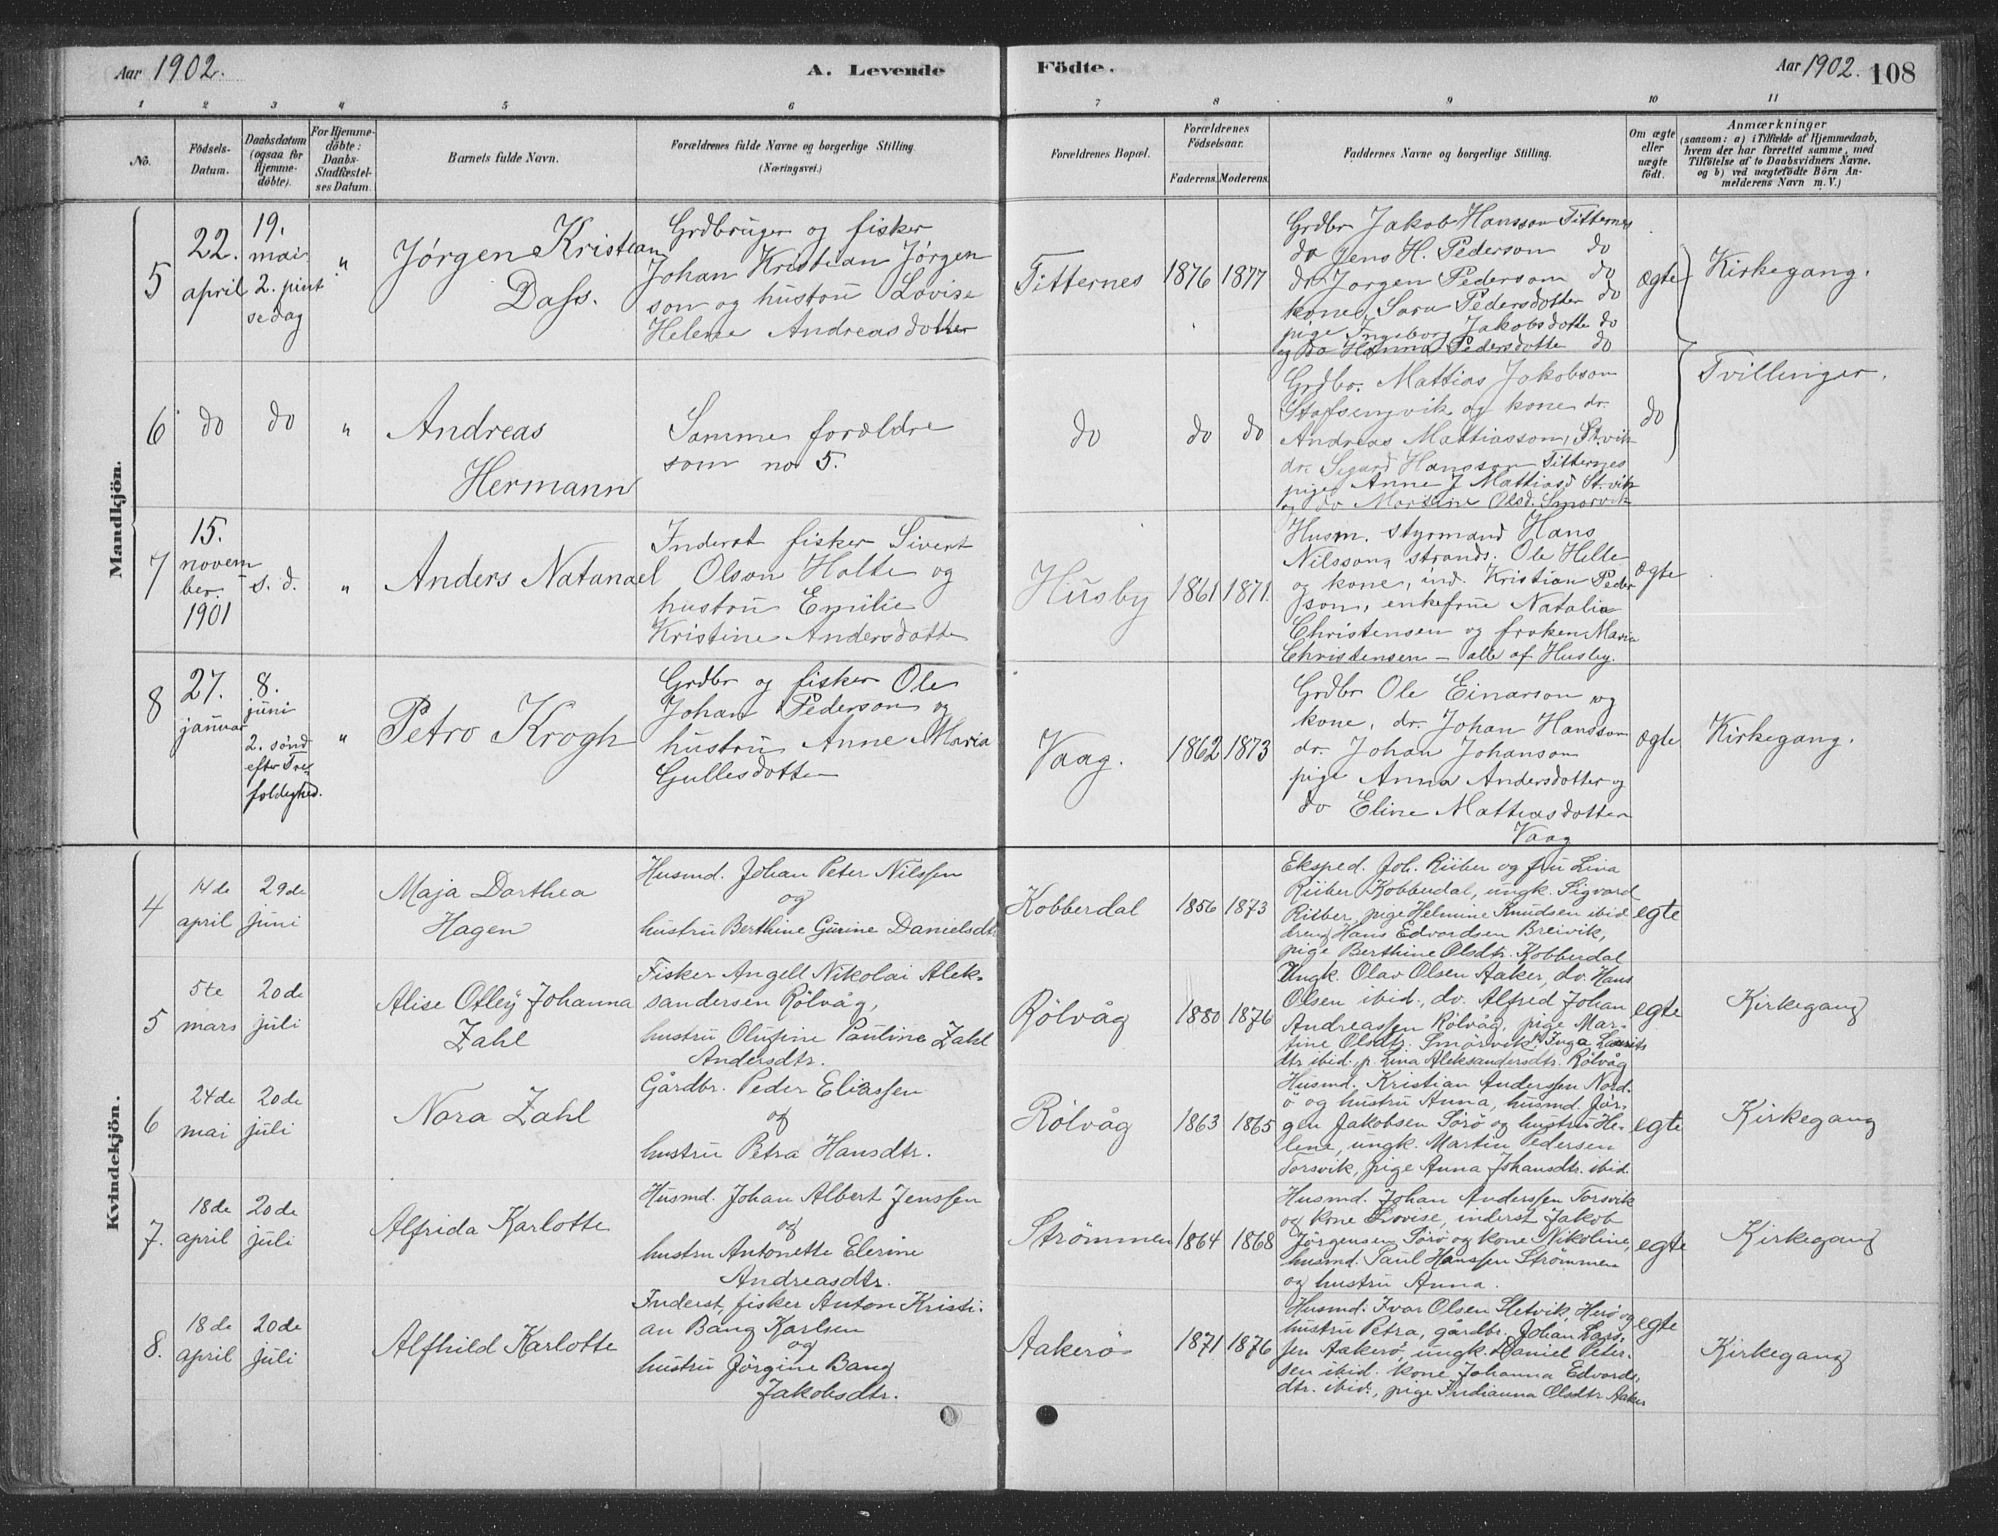 Aar 1902.
A. Levende Födte.
Aar 1902. 108
1 2 3 4 5 6 7 8 9 10 11
No.
Födsels-
Datum.
Daabsdatum
(ogsaa for
Hjemme-
döbte).
For Hjemme-
döbte:
Daabs-
Stadfæstel-
ses Datum.
Barnets fulde Navn.
Forældrenes fulde Navne og borgerlige Stilling
(Næringsvei.)
Forældrenes Bopæl.
Forældrenes
Födselsaar.
Faderens. Moderens.
Faddernes Navne og borgerlige Stilling.
Om ægte
eller
uægte
födt.
Anmærkninger
(saasom: a) i Tilfælde af Hjemmedaab,
hvem der har forrettet samme, med
Tilföielse af to Daabsvidners Navne.
og b) ved uægtefödte Börn An-
melderens Navn m. V.)
Mandkjön.
5
22.
april
19.
mai
2. pint
sedag
"
Jørgen Kristian
Dass.
Grdbruger og fisker
Johan Kristian Jørgen
son og hustru Lovise
Helene Andreasdotter
Titternes
1876
1877
Grdbr Jakob Hansson Titternes
do Jens H. Pederson do
do Jorgen Pederson do
kone Sara Pedersdotter do
pige Ingeborg Jakobsdotte do
og do Hanna Pedersdotte do
ægte
Kirkegang.
6
do
do
"
Andreas
Hermann
Samme forældre
som no 5.
do
do
do
Grdbr. Mattias Jakobson
og kone dr.
Andreas Mattiasson, St.vik
dr. Sigurd Hansson Titternes
pige Anne J Mattiasd St.vik
og do Olsd. Smorvik
do
Tvillinger.
7
15.
novem
ber.
1901
s. d.
"
Anders Natanael
Inderst fisker Sivert
Olson Holte og
hustru Emilie
Kristine Andersdotte
Husby
1861
1871.
Husm. styrmand Hans
Nilsson, strands. Ole Helte
og kone, ind. Kristian Peder
son, enkefrue Natalia
Christensen og frøken Maria
Christensen – alle af Husby.
ægte
8
27.
januar
8.
juni
2. sønd
efter Tre
foldeghed.
"
Petro Krogh
Grdbr og fisker Ole
Johan Pederson og
hustru Anne Maria
Gullesdotter
Vaag.
1862
1873
Grdbr Ole Einarson og
kone, dr. Johan Hansson
dr. Johan Johanson
pige Anna Andersdotter og
do Eline Mattiasdotter
Vaag
ægte
Kirkegang.
Kvindekjön.
4
14de
april
29de
juni
Maja Dorthea
Hagen
Husmd. Johan Peter Nilssen
og
hustru Berthine Gurine Danielsdtr
Kobberdal
1856
1873
Eksped. Joh. Riiber og fru Lina
Riiber Kobberdal, ungk. Sigvard
Riiber, pige Helmine Knudsen ibid
dreng Hans Edvardsen Breivik,
pige Berthine Olsdtr. Kobberdal
egte
5
5te
mars
20de
juli
Alise Otley Johanna
Zahl
Fisker Angell Nikolai Alek-
sandersen Rølvåg,
hustru Olufine Pauline Zahl
Andersdtr.
Rölvåg
1880
1876
Ungk. Olav Olsen Aaker, do. Hans
Olsen ibid., do. Alfred Johan
Andreassen Rölvåg, pige Mar-
tine Olsdtr. Smörvik, Inga Laurits
dtr ibid. p. Lina Aleksandersdtr. Rölvåg
egte
Kirkegang
6
24de
mai
20de
juli
Nora Zahl
Gårdbr. Peder Eliassen
og
hustru Petra Hansdtr.
Rölvåg
1863
1865
Husmd. Kristian Anderssen Nord-
ö og hustru Anna, husmd. Jör-
gen Jakobsen Sörö og hustru He-
lene, ungk. Martin Pedersen
Torsvik, pige Anna Johansdtr. ibid.
egte
Kirkegang
7.
18de
april
20de
juli
Alfrida Karlotte
Husmd. Johan Albert Jenssen
og
hustru Antonette Elerine
Andreasdtr.
Strömmen
1864
1868
Husmd. Johan Anderssen Torsvik
og kone Lovise, inderst Jakob
Jörgensen Sörö og kone Nikoline,
husmd. Paul Hanssen Strömmen
og hustru Anna.
egte
Kirkegang
8.
18de
april
20de
juli
Alfhild Karlotte
Inderst, fisker Anton Kristi-
an Bang Karlsen
og
hustru Jörgine Bang
Jakobsdtr.
Aakerö
1871
1876
Husmd. Ivar Olsen Sletvik, Herö og
hustru Petra, gårdbr. Johan Lars-
sen Aakerö, ungk. Daniel Peter-
sen ibid. kone Johanna Edvards-
dtr. ibid., pige Indianna Olsdtr Aaker
egte
Kirkegang